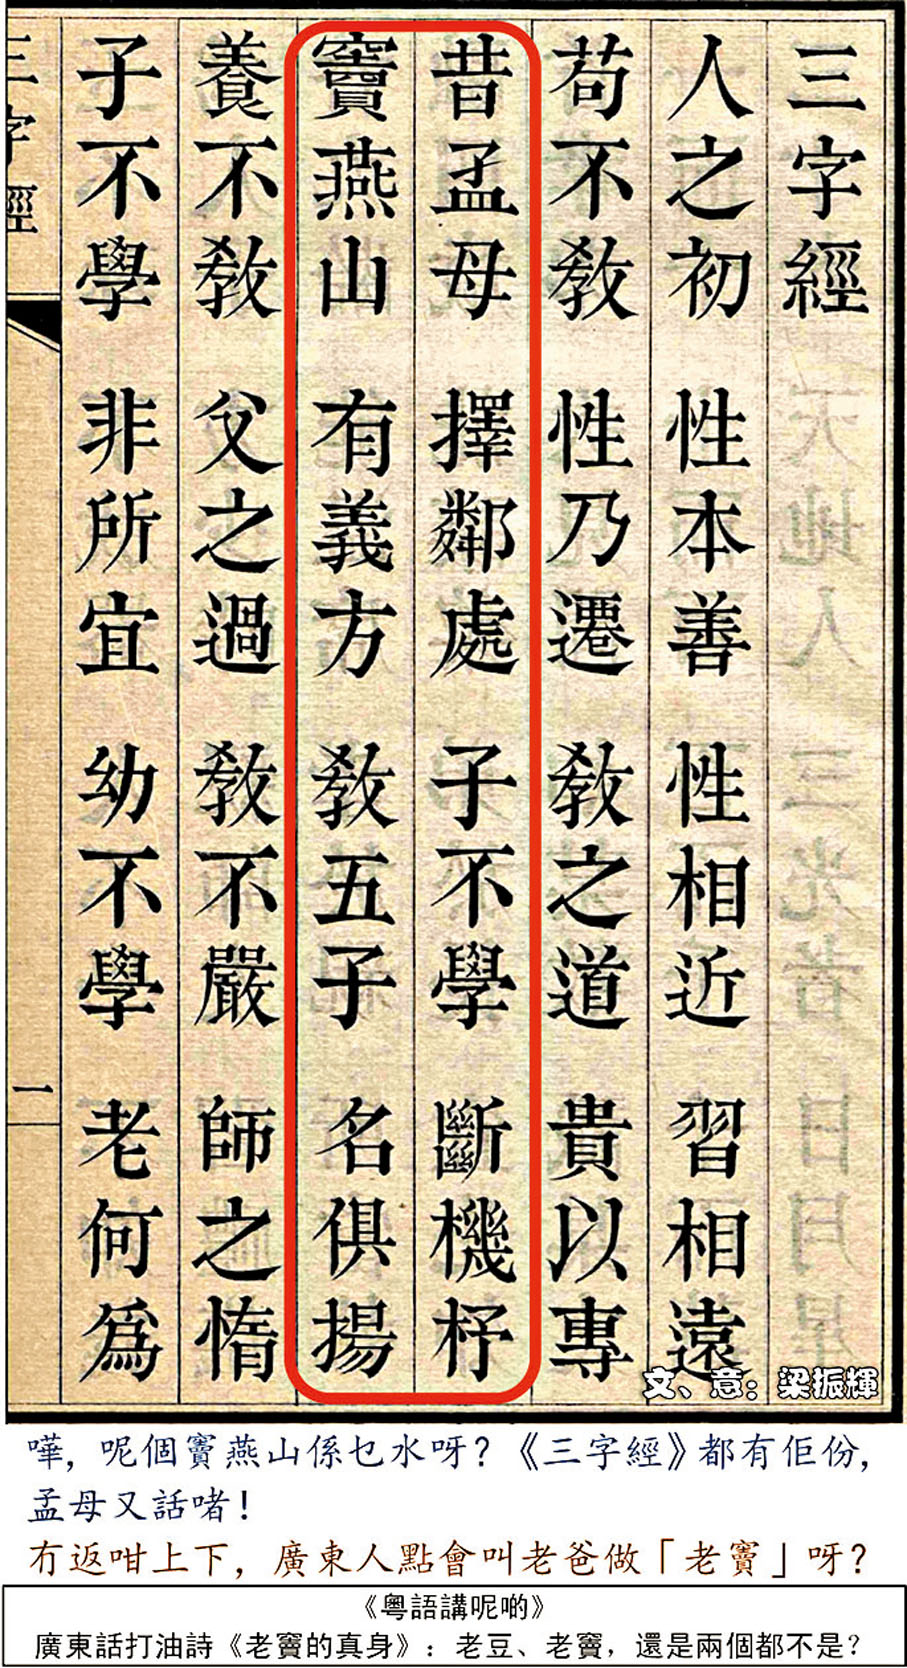 三字經
人之初 性本善 性相近 習相遠
苟不敎 性乃遷 敎之道 貴以專
昔孟母 擇鄰處 子不學 斷機杼
竇燕山 有義方 敎五子 名俱揚
養不敎 父之過 敎不嚴 師之惰
子不學 非所宜 幼不學 老何爲
三字經
一
文、意：梁振輝
嘩，呢個竇燕山係乜水呀？《三字經》都有佢份，
孟母又話啫！
冇返咁上下，廣東人點會叫老爸做「老竇」呀？
《粵語講呢啲》
廣東話打油詩《老竇的真身》：老豆、老竇，還是兩個都不是？